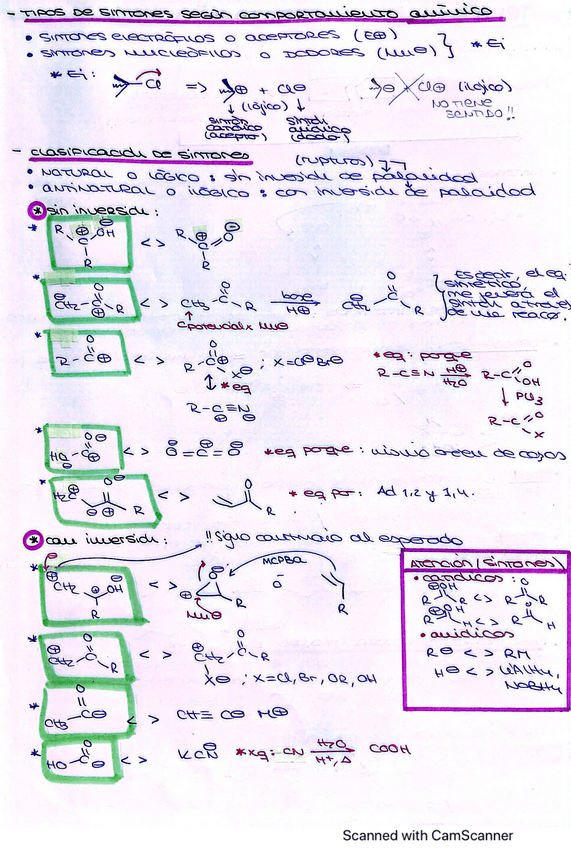 - TIPOS DE SINTONES SEGÚN COMPORTAMIENTO QUÍMICO
• SINTONES ELECTRÓFILOS O ACEPTORES (E⊕)
• SINTONES NUCLEÓFILOS O DADORES (Nu⊖) } * Ej
* Ej: Cl => ⊕ + Cl⊖ ⊖ Cl⊕ (ilógico)
(lógico) NO TIENE SENTIDO!!
SINTÓN CATIÓNICO (aceptor) SINTÓN ANIÓNICO (dador)
- CLASIFICACIÓN DE SINTONES (rupturas)
• NATURAL O LÓGICO: sin inversión de polaridad
• ANTINATURAL O ILÓGICO: con inversión de polaridad
* sin inversión:
* R C⊕ OH R < > R C⊕ O⊖ R
* ⊖CH2 - C⊕ O R < > CH3 C O R base H⊕ ⊖CH2 C O R
C potencial x Nu⊖
Es decir, el eq. sintético, me genera el sintón a través de una reacc.
* R - C⊕ O < > R C⊕ O X⊖ ; X = Cl⊖ Br⊖
* eq
R - C ≡ N
* eq: porque
R - C ≡ N H⊕ H2O R - C O OH
PCl3
R - C O X
* HO C⊕ O⊖ < > O = C⊕ = O * eq porque: mismo orden de
* H2C C O R < > O R * eq por: Ad 1,2 y 1,4.
* con inversión: !! Signo contrario al esperado
* ⊕CH2 C OH R < > O⊖ R MCPBA R
Nu⊖
* ⊕CH2 C O R < > CH2 C O R
X⊖ ; X = Cl, Br, OR, OH
* CH3 C⊖ O < > CH ≡ C⊖ H⊕
* HO C⊖ O < > KCN⊖ * xq: CN H2O H+, Δ COOH
ATENCIÓN (SINTONES)
• catiónicos:
⊕OH R R < > O R R
⊕OH R H < > O R H
• aniónicos
R⊖ < > RM
H⊖ < > LiAlH4, NaBH4
Scanned with CamScanner